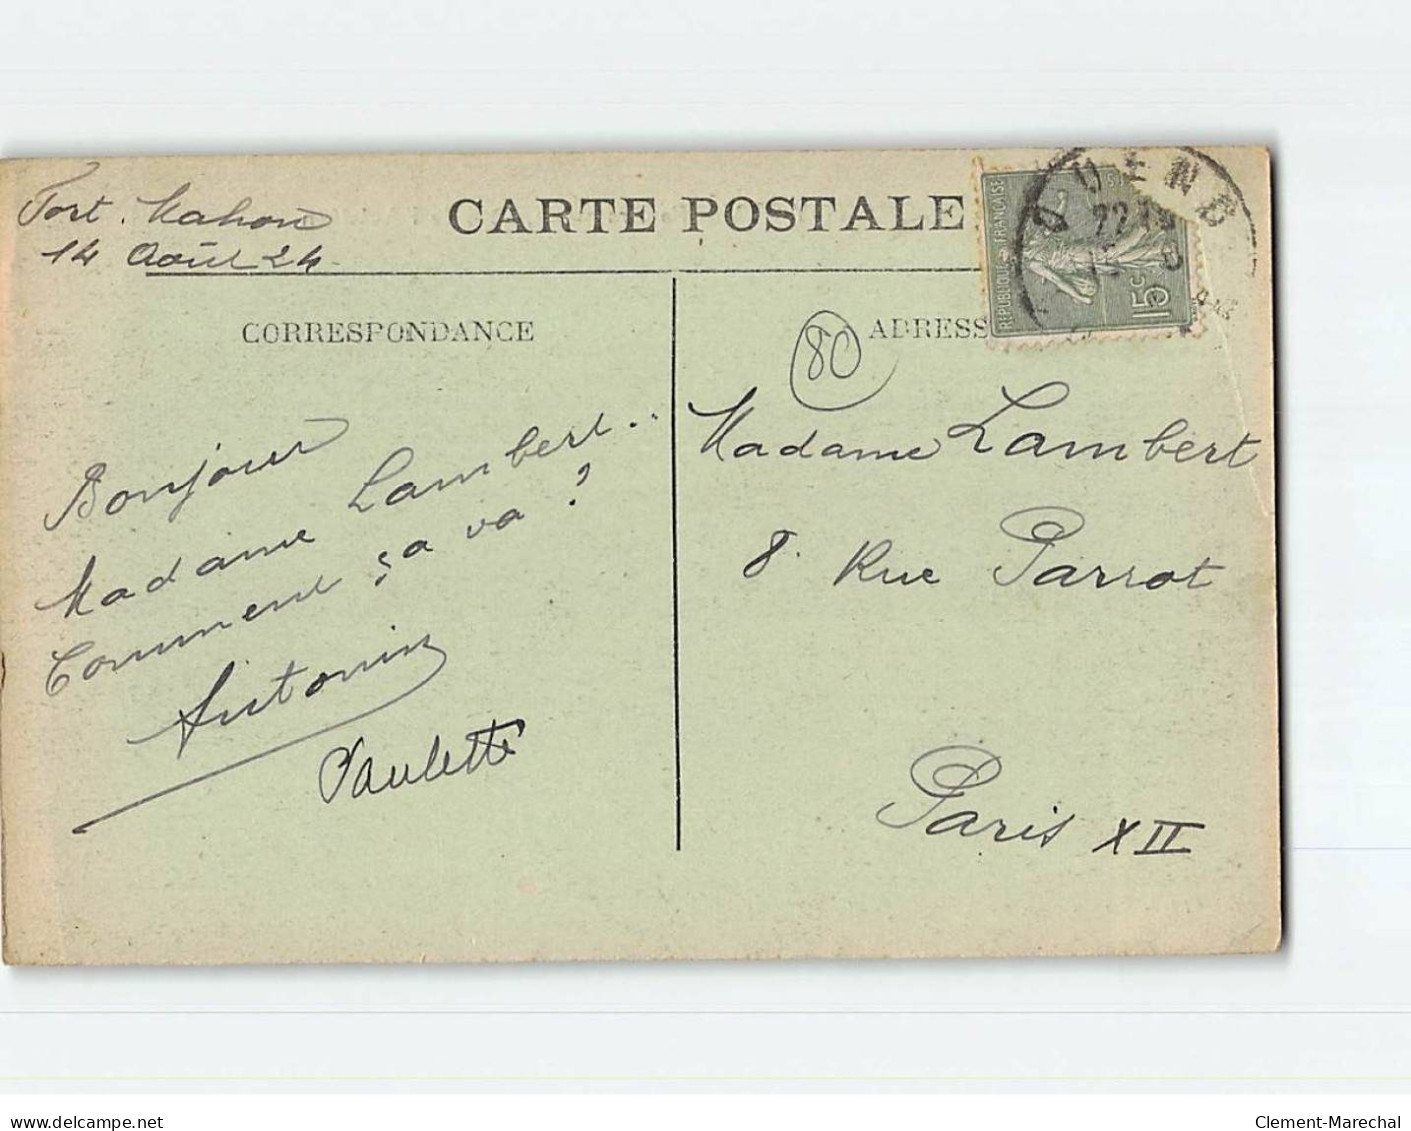 Fort. Mahon
14 Août 24
CARTE POSTALE
CORRESPONDANCE
Bonjour
Madame Lambert..
Comment ça va ?
Antonin
Paulette
80
ADRESS
REPUBLIQUE FRANÇAISE
15c
QUEND
Madame Lambert
8. Rue Parrot
Paris XII
www.delcampe.net
Clement-Marechal